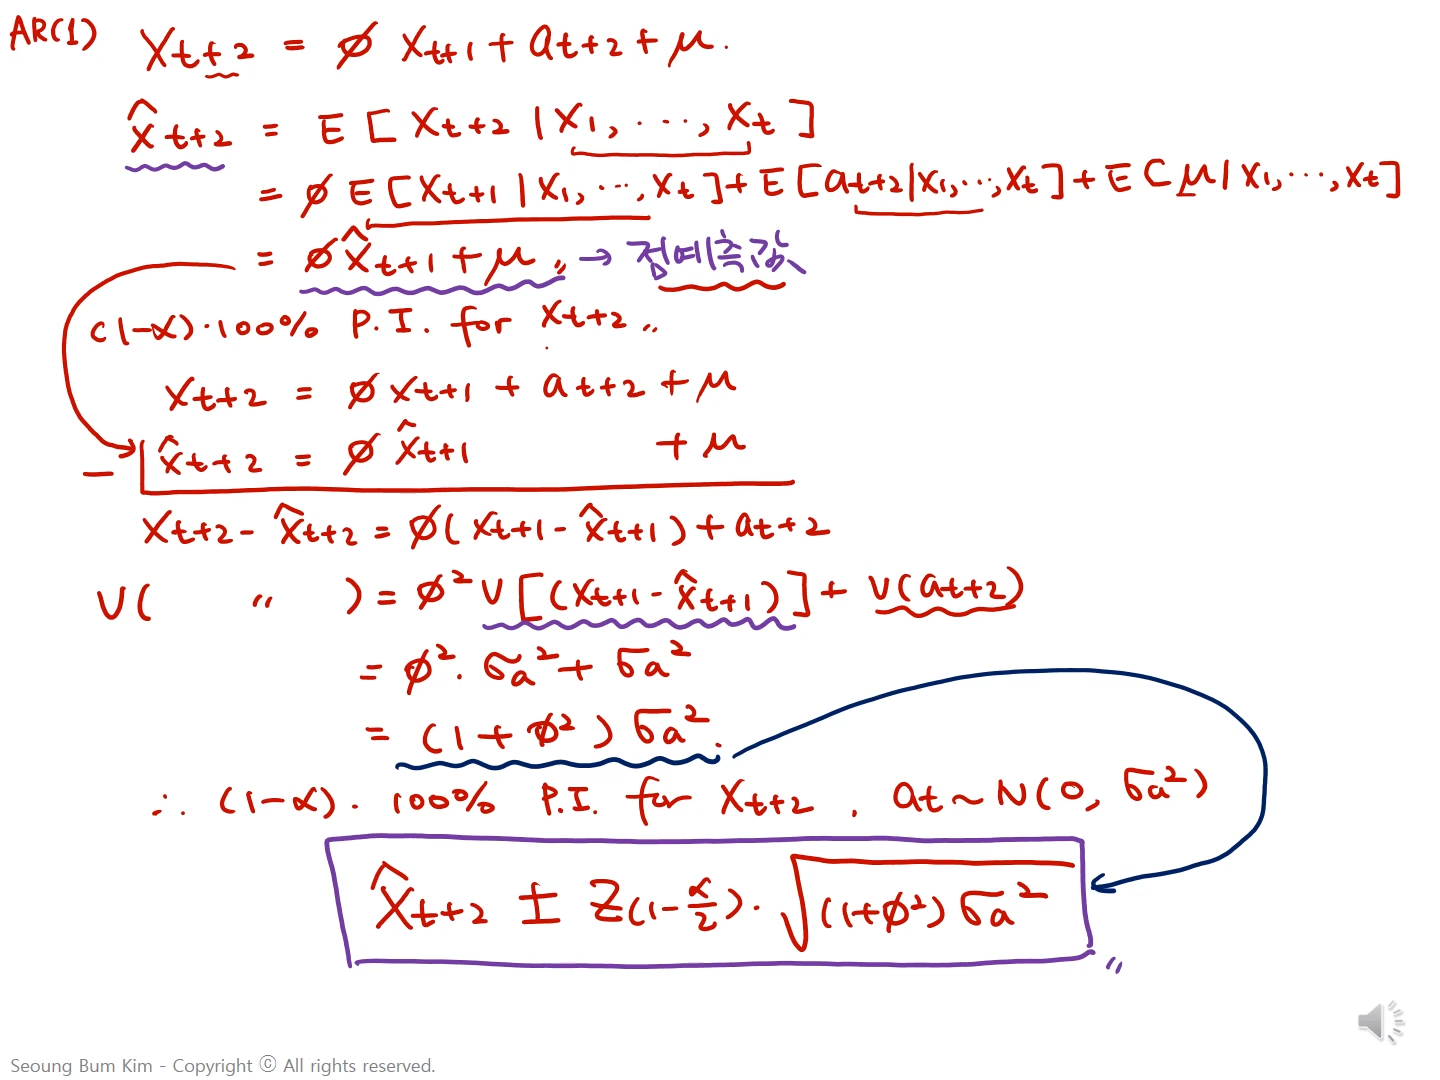 AR(1) Xt+2 = ø Xt+1 + at+2 + μ.
X̂t+2 = E [ Xt+2 | X1, ..., Xt ]
= ø E [ Xt+1 | X1, ..., Xt ] + E [ at+2 | X1, ..., Xt ] + E [ μ | X1, ..., Xt ]
= ø X̂t+1 + μ 〃 → 점예측값
(1-α)·100% P.I. for Xt+2 〃
Xt+2 = ø Xt+1 + at+2 + μ
- X̂t+2 = ø X̂t+1 + μ
Xt+2 - X̂t+2 = ø( Xt+1 - X̂t+1 ) + at+2
V( 〃 ) = ø² V [ (Xt+1 - X̂t+1) ] + V(at+2)
= ø² · σa² + σa²
= (1 + ø²) σa².
∴ (1-α)· 100% P.I. for Xt+2 , at ~ N(0, σa²)
X̂t+2 ± Z(1-α/2) · √(1+ø²) σa² 〃
Seoung Bum Kim - Copyright ⓒ All rights reserved.